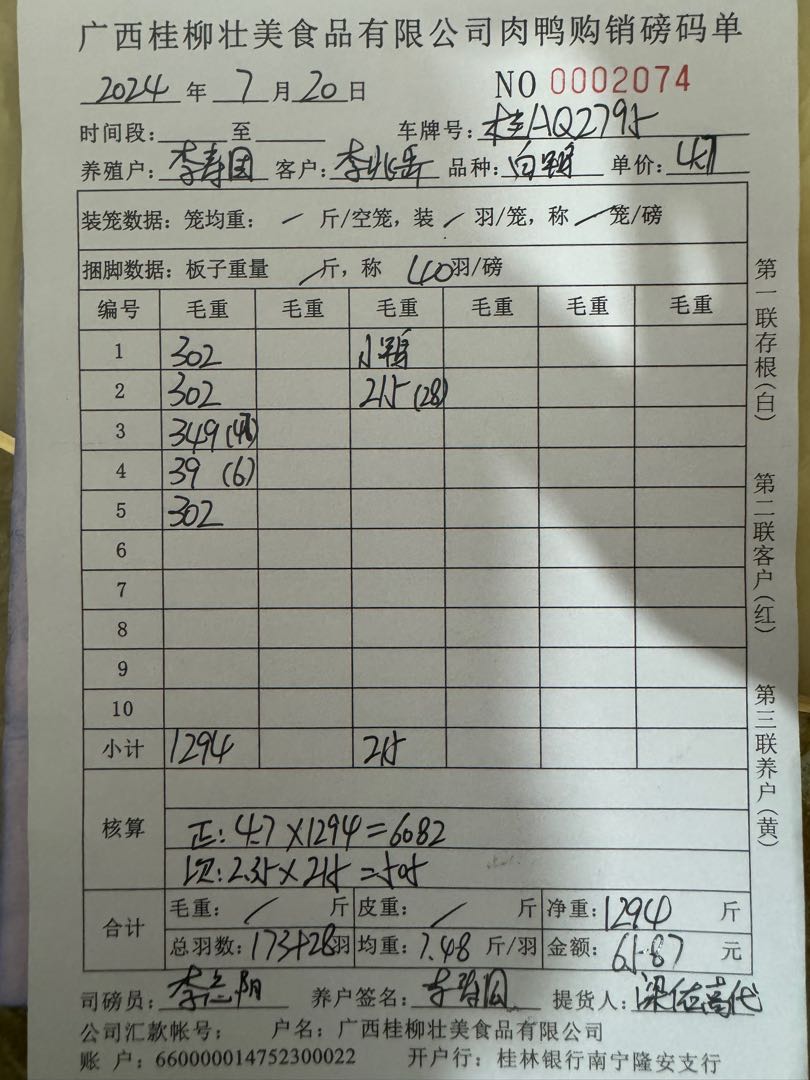 广西桂柳壮美食品有限公司肉鸭购销磅码单
2024 年 7 月 20 日 NO 0002074
时间段: 至 车牌号: 桂AQ2795
养殖户: 李寿国 客户: 李兆岳 品种: 白鸭 单价: 4.7
装笼数据: 笼均重: / 斤/空笼, 装 / 羽/笼, 称 / 笼/磅
捆脚数据: 板子重量 / 斤, 称 40 羽/磅
编号 毛重 毛重 毛重 毛重 毛重 毛重
1 302 小鸭
2 302 215 (28)
3 349 (47)
4 39 (6)
5 302
6
7
8
9
10
小计 1294 215
核算
正: 4.7×1294=6082
次: 2.35×215=505
合计
毛重: / 斤 皮重: / 斤 净重: 1294 斤
总羽数: 173+28 羽 均重: 7.48 斤/羽 金额: 6587 元
司磅员: 养户签名: 李寿国 提货人:
公司汇款帐号: 户名: 广西桂柳壮美食品有限公司
账 户: 660000014752300022 开户行: 桂林银行南宁隆安支行
第一联存根(白)
第二联客户(红)
第三联养户(黄)